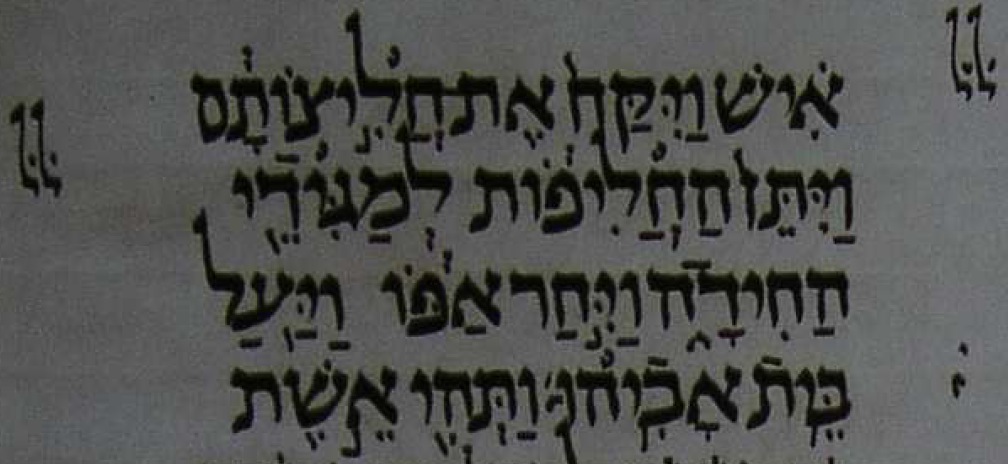 אִישׁ וַיִּקַּח אֶת חֲלִיצוֹתָם
וַיִּתֵּן הַחֲלִיפוֹת לְמַגִּידֵי
הַחִידָה וַיִּחַר אַפּוֹ וַיַּעַל
בֵּית אָבִיהוּ׃ וַתְּהִי אֵשֶׁת